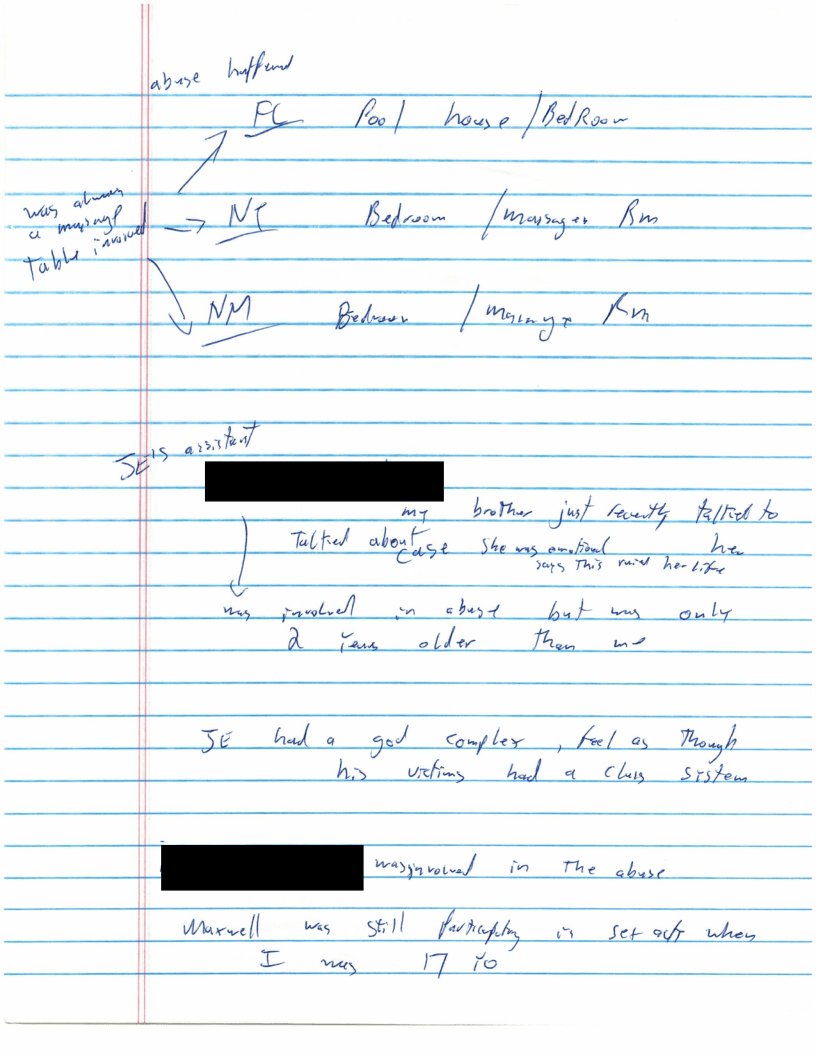 abuse happened
FL Pool house / BedRoom
was always
a massage
Table involved
NY Bedroom / massage Rm
NM Bedroom / massage Rm
JE's assistant
my brother just recently talked to
Talked about case she was emotional her
says This ruined her life
was involved in abuse but was only
2 years older than me
JE had a god complex, feel as Though
his victims had a class system
was involved in The abuse
Maxwell was still participating in sex acts when
I was 17 yo